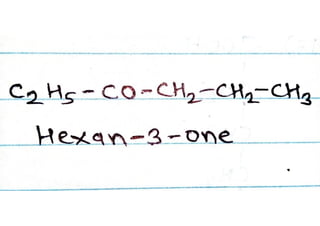 C₂H₅-CO-CH₂-CH₂-CH₃
Hexan-3-one